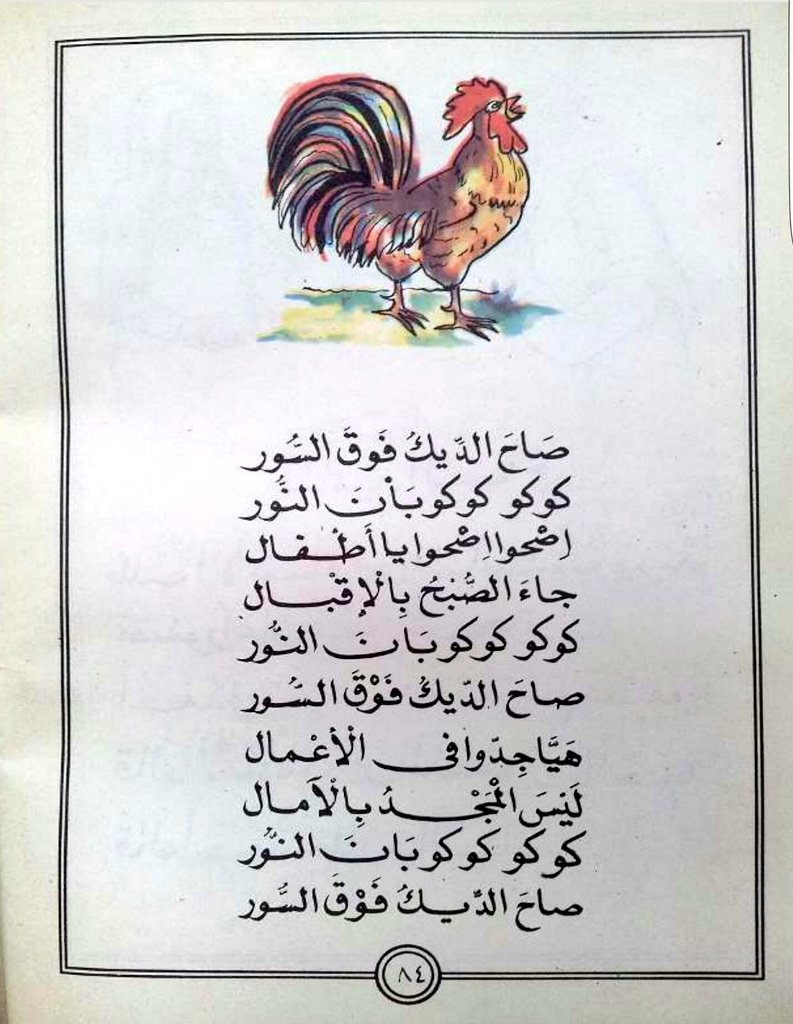 صَاحَ الدّيكُ فَوقَ السُّور
كوكو كوكو بَانَ النُّور
اِصْحوا اِصْحوا يا أَطْفال
جاءَ الصُّبْحُ بِالْإِقْبال
كوكو كوكو بَانَ النُّور
صاحَ الدّيكُ فَوْقَ السُّور
هَيَّا جِدّوا في الْأَعْمال
لَيْسَ الْمَجْدُ بِالْآمال
كوكو كوكو بَانَ النُّور
صاحَ الدّيكُ فَوْقَ السُّور
٨٤